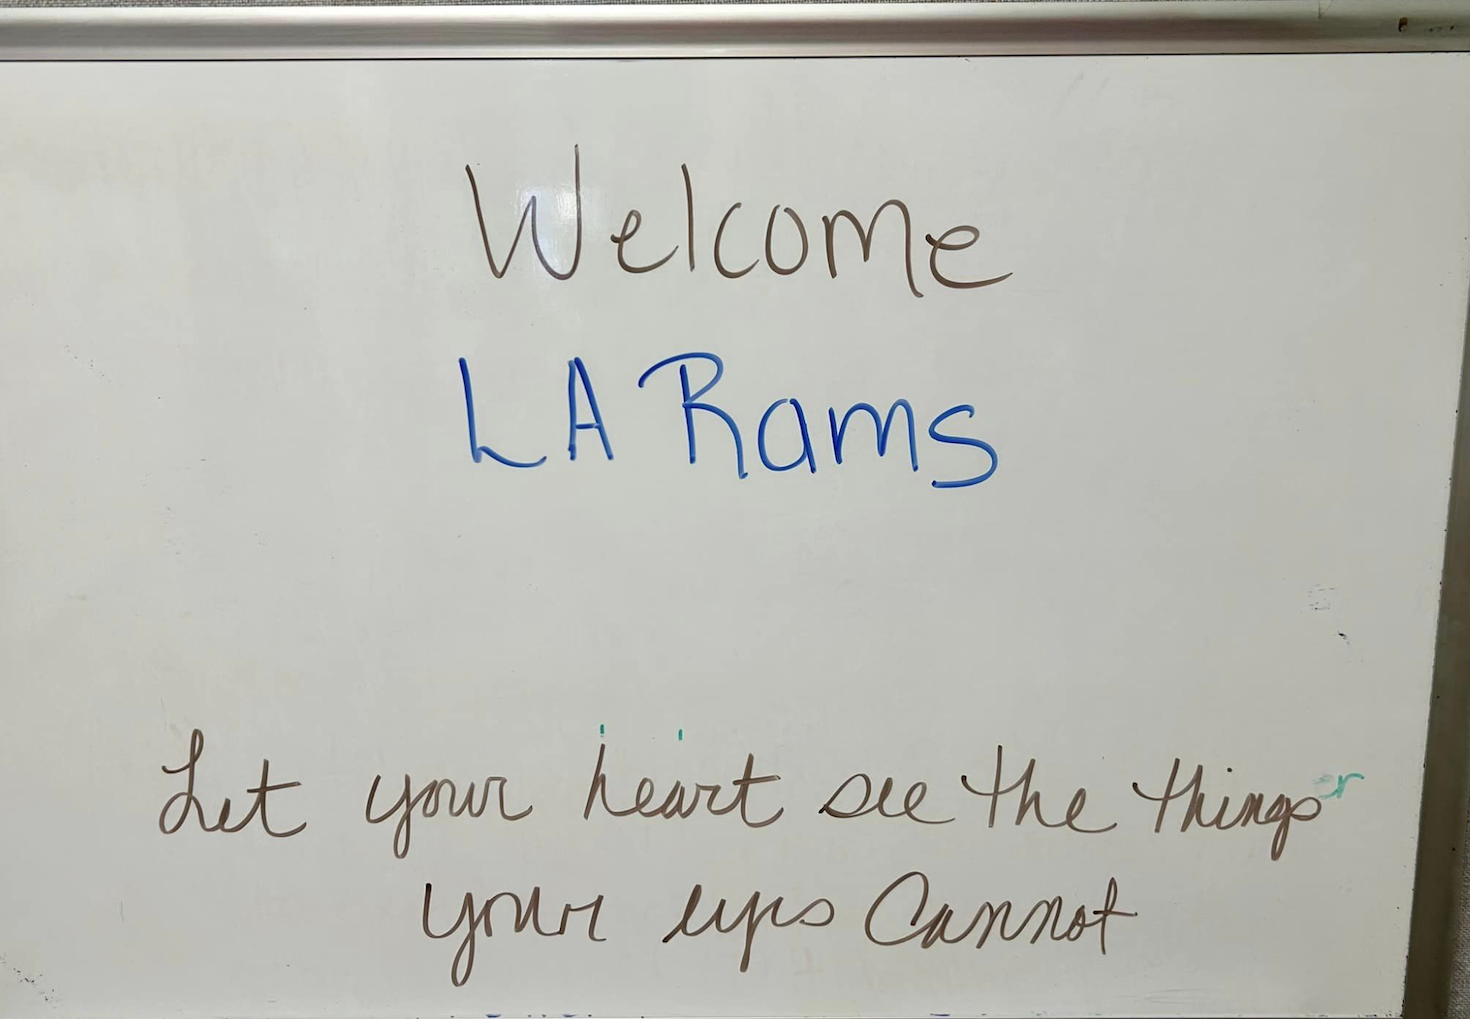 Welcome
LA Rams
Let your heart see the things
your eyes Cannot